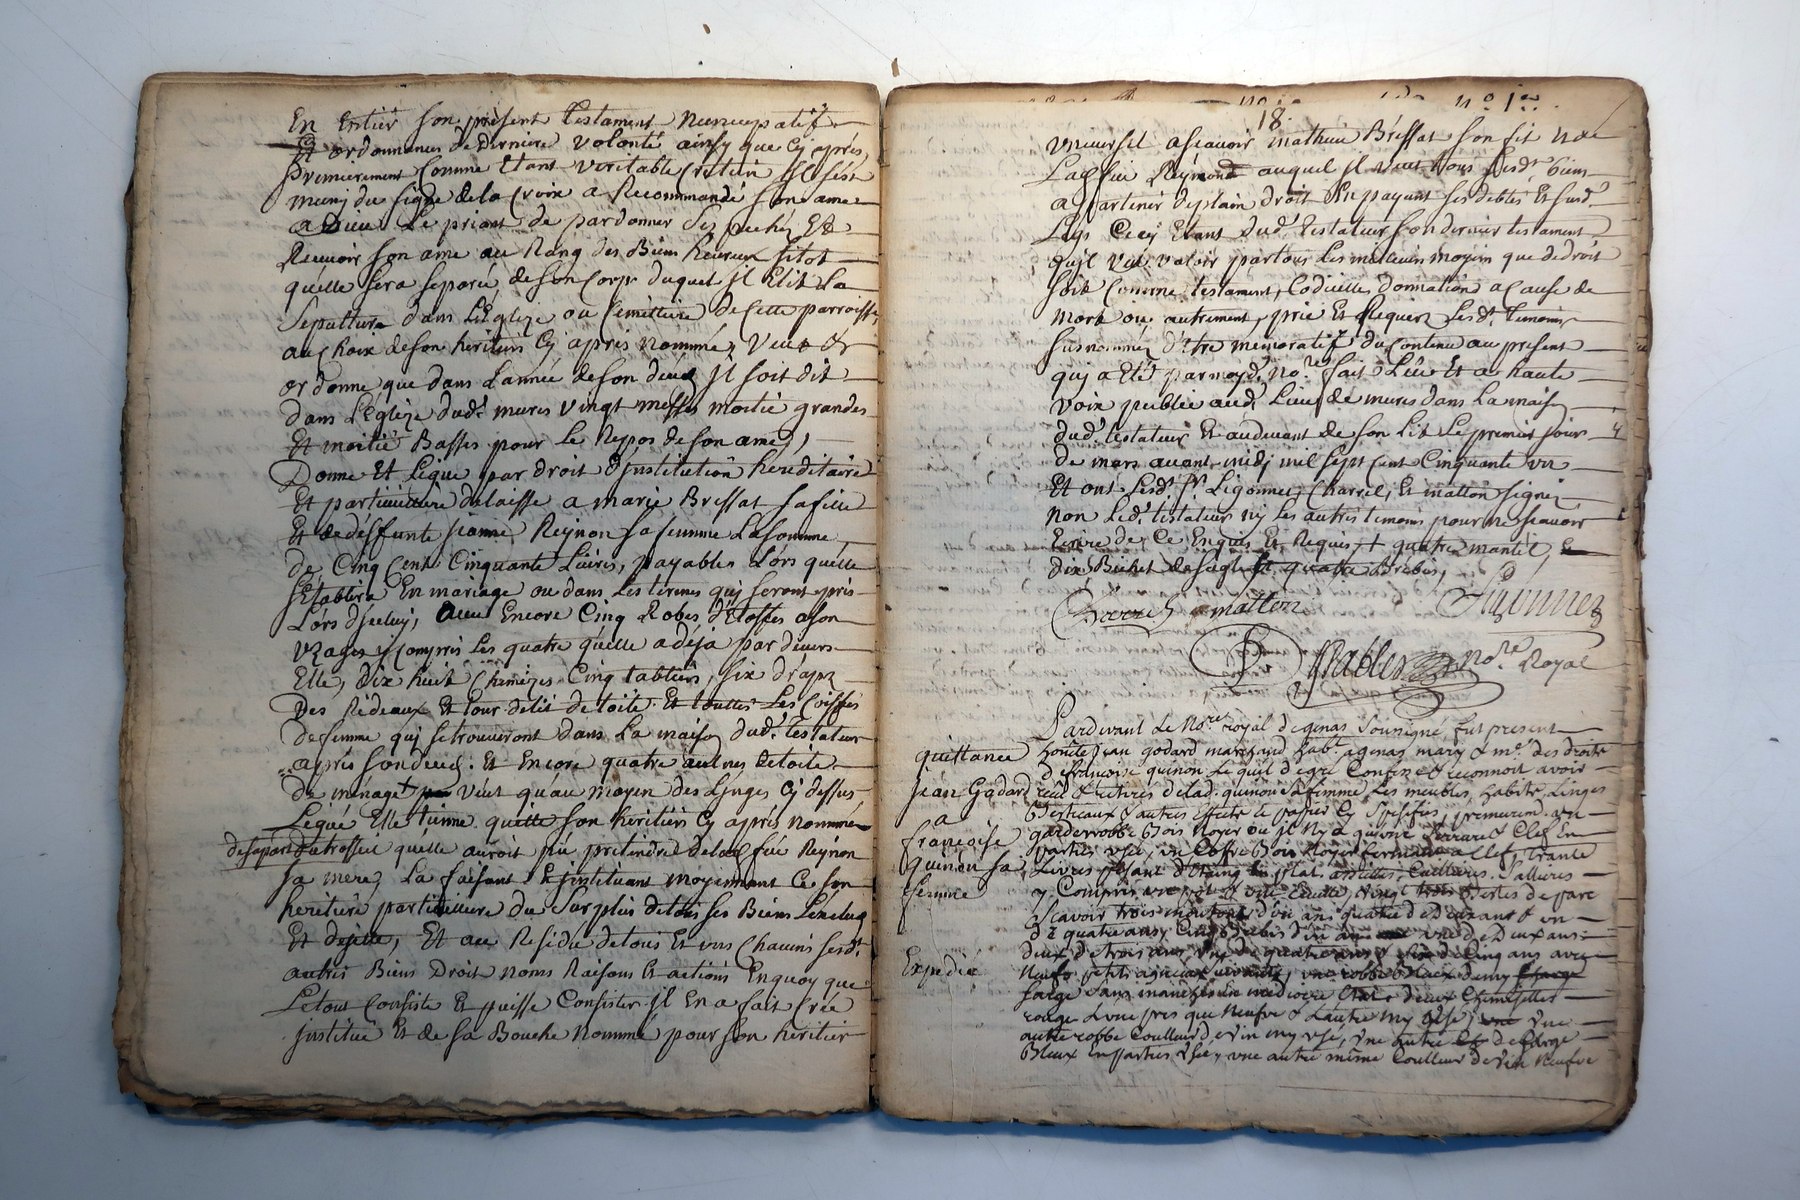 En Entier son présent testament Nuncupatif
Et ordonnance de Derniere volonté ainsy que Cy après
Premierement Comme Etant veritable Cretien Il sést
muny du signe de la Croix a Recommandé son ame
a Dieu Le priant de pardonner ses pechéz Et
Recevoir son ame au Rang des Bien heureux sitot
quélle sera separée de son Corps duquel Il Elit La
sepulture dans L'Eglize ou Cimettiere de Cette parroisse,
au Choix de son heritier Cy après nommé, veut Et
ordonne que dans L'année de son deces Il soit dit
dans L'Eglize dudt. mures vingt messes moitié grandes
Et moitié Basses pour Le Repos de son ame,
Donne Et Legue par droit d'Institution hereditaire
Et particuliere delaisse a marie Bressat sa fille
Et de deffunte jeanne Reynon sa femme La somme
de Cinq Cent Cinquante Livres, payables Lors quélle
s'Etablira En mariage ou dans Les termes qui seront pris
Lors d'jceluy, avec Encore Cinq Robes d'Etoffes a son
uzage y Compris Les quatre quélle a déja par devers
Elle, dix huit Chemizes Cinq tabliers, six draps
Des Rideaux Et tour de lit de toile. Et touttes Les Coiffes
de femme qui se trouveront dans La maison dudt. testateur
après son deces. Et Encore quatre autnes de toile
de ménage + veut quáu moyen des Linges Cy dessus
Légué Elle tienne quitte son heritier Cy après nommé
de sa part
du trossel quélle auroit pu pretendre de lad. feue Reynon
sa mere, La faisant Et jnstituant moyennant Ce son
heritiere particulliere du surplus de tous ses Biens L'excluq
Et dejette, Et au Residu de tous Et uns Chacuns sesdt.
autres Biens Droit noms Raisons Et actions En quoy que
Le tout Consiste Et puisse Consister Il En a fait Crée
Institué Et de sa Bouche nommé pour son heritier
no 1er.
18.
universel a scavoir mathieu Bressat son fils né de
Lad. feue Reymond auquel Il veut tous sesdt. biens
apartenir de plain droit En payant ses debtes Et susd.
Legs Cecy Etant dudt. testateur son dernier testament
quíl veut valoir par tous Les meilleurs moyen que de droit
soit Comme testament, Codicilles donnation a Cause de
mort ou autrement, prie Et Requier Lesdt. temoins
sus nommez d'etre memoratifs du Contenu au present
qui a Eté par moyd. Nore. fait Leu Et a haute
voix publiée aud. Lieu de mures dans La maison
dudt. testateur Et audevant de son Lit Le premier jour
de mars avant midi mil sept Cent Cinquante un
Et ont Lesdt. sr. Ligonnet, Charrel, Et matton signéz
non Ledt. testateur ny Les autres temoins pour ne scavoir
Ecrire de Ce Enquis Et Requis, + quatre mantil, Et
dix Bichet de seigle Et quatre Brebis,
matton
Nore Royal
Pardevant Le Nore royal d'genas soussigné, fut present
honnete jean godard marchand habt. a genas mary & me. des droits
de francoise quinon Le quel degré Confesse & reconnoit avoir
receu & retirés de lad. quinon sa femme Les meubles, habits, Linges
Bestiaux & autres Effects
garderobbe Bois Noyer ou jl N'y a qu'une serrure & Clef En
partie usée, un Coffre Bois Noyer fermant a Clef, trante
Livres pesant d'Etaing
y Compris
Scavoir trois moutons d'un ans quatre de Deux ans & un
de quatre ans, Cinq Brebis d'un an une de Deux ans
deux de trois ans, une de quatre ans & six de Cinq ans avec
Neufs petits agneaux suivants, une robbe Bleux demy
sarge sans manches
rouge L'une presque Neufve & L'autre my usé, une
autre robbe Coulleur de vin my usé, une autre de sarge
Bleux En partie usée, une autre même Coulleur de vin Neufve
quittance
jean Godard
a
francoise
quinon sa
femme
Expedié